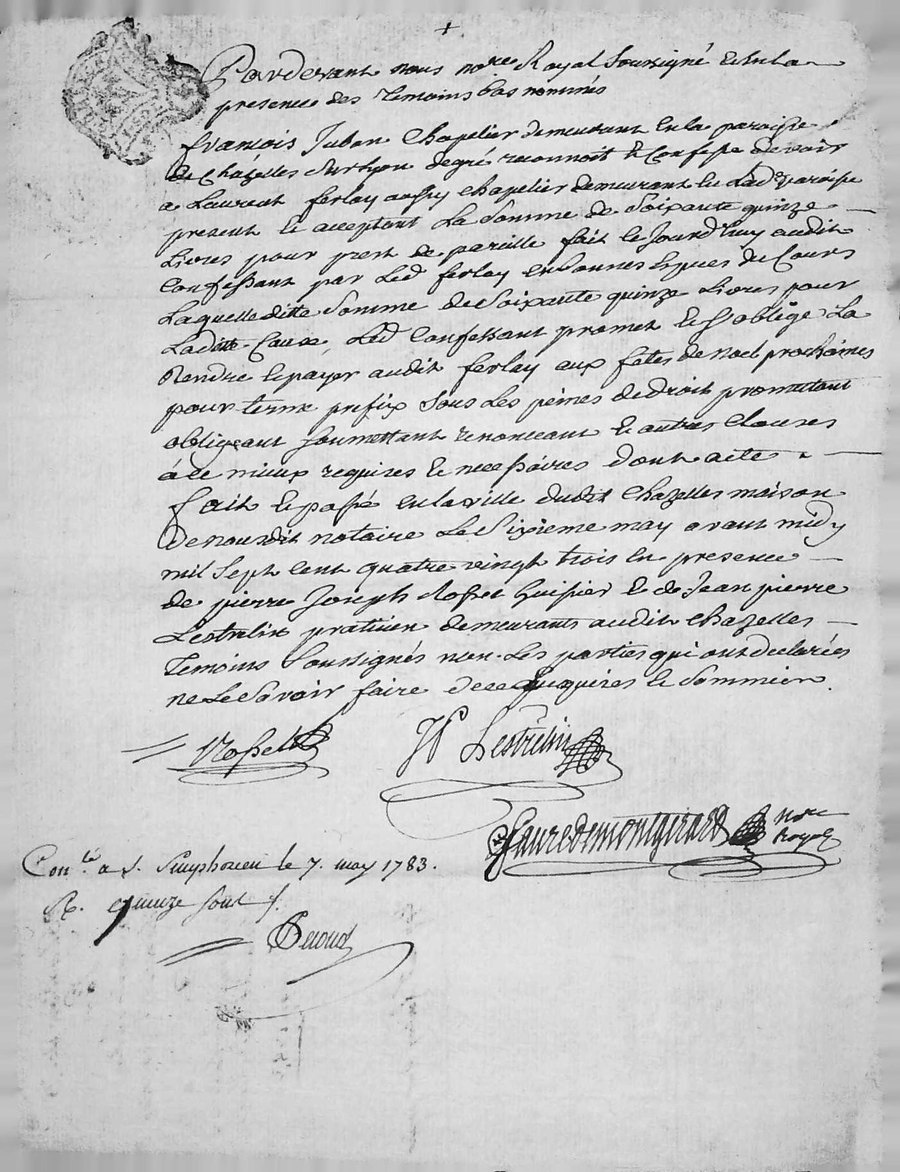 +
Pardevant nous no.re Royal Soussigné et en la
presence des temoins bas nommés
françois Juban Chapelier demeurant en la paroisse
de Chazelles sur Lyon degré reconnoit et Confesse devoir
a Laurent ferlay aussy Chapelier demeurant en Lad. paroisse
present et acceptant La Somme de Soixante quinze
Livres pour prest de pareille fait ce Jourd'huy audit
Confessant par Led ferlay en bonnes Especes de Cours
Laquelle ditte Somme de Soixante quinze Livres pour
Laditte Cause, Led Confessant promet et s'oblige La
Rendre et payer audit ferlay aux fêtes de noel prochaines
pour terme prefix Sous Les peines de droit promettant
obligeant Soumettant renonceant et autres Clauses
à ce mieux requises et necessaires dont acte
fait et passé en la ville dudit Chazelles maison
de nous dit notaire Le Sixieme may avant midy
mil Sept Cent quatre vingt trois en presence
de pierre Joseph Rosset huissier et de Jean pierre
Lestrelin praticien demeurants audit Chazelles
temoins Soussignés non Les parties qui ont declarées
ne Le Savoir faire de ce enquises et Sommées
Rosset
JP Lestrelin
faure de montgirard no.re Royal
Con.lé a S. Simphorien le 7. may 1783.
R. quinze Sous